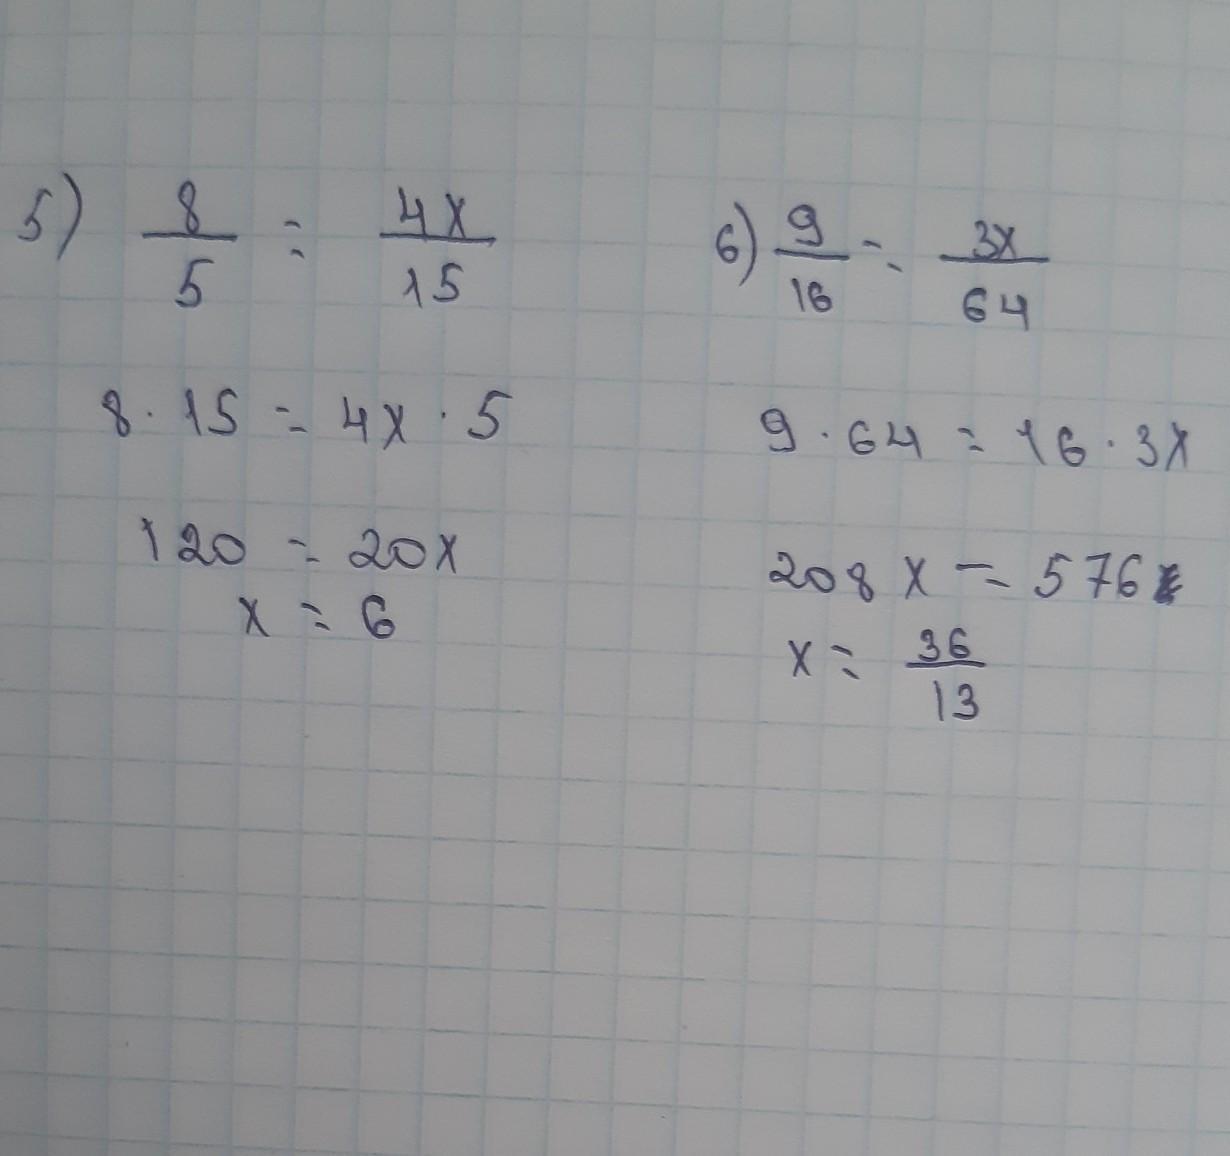 5) 8/5 = 4x/15
8 · 15 = 4x · 5
120 = 20x
x = 6
6) 9/16 = 3x/64
9 · 64 = 16 · 3x
208x = 576
x = 36/13